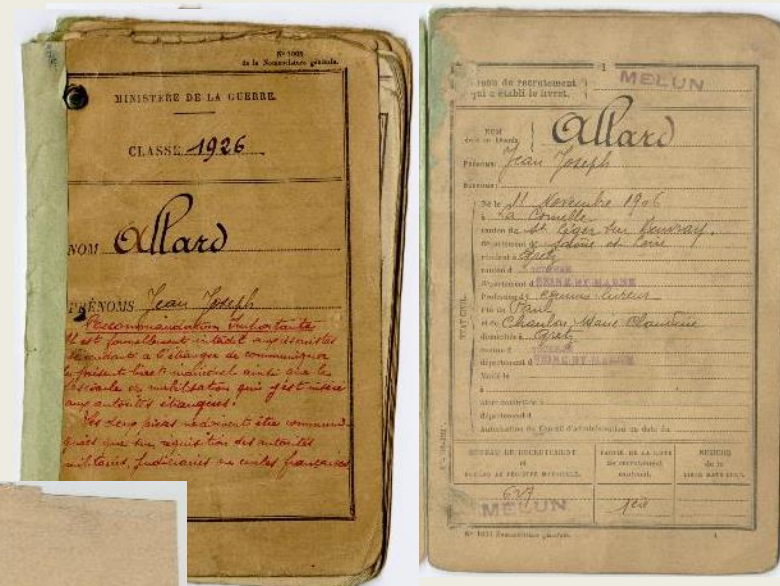 N° 1005
de la Nomenclature générale.
MINISTÈRE DE LA GUERRE.
CLASSE 1926
NOM Allard
PRÉNOMS Jean Joseph
Recommandation Importante
Il est formellement interdit aux
à l'étranger de communiquer
le présent livret matricule ainsi que le
fascicule de mobilisation qui y est inséré
aux autorités étrangères.
Ces deux pièces ne doivent être communi
quées que sur réquisition des autorités
militaires, judiciaires ou civiles françaises
1
Bureau de recrutement
qui a établi le livret.
MELUN
NOM
Allard
Prénoms: Jean Joseph
Surnoms:
Né le 11 Novembre 1906
à La Comelle
canton de St Léger sur Beuvray,
département de Saône et Loire
résidant à Gretz
canton d
département d SEINE-ET-MARNE
Profession de
fils de Paul
et de Chanlon Marie Claudine
domiciliés à Gretz
canton d
département d SEINE-ET-MARNE
Marié le
à
département d
Autorisation du Conseil d'administration en date du
ÉTAT CIVIL
BUREAU DE RECRUTEMENT
et
NUMÉRO AU REGISTRE MATRICULE.
PARTIE DE LA LISTE
de recrutement
cantonal.
NUMÉRO
de la
627
MELUN
1ère